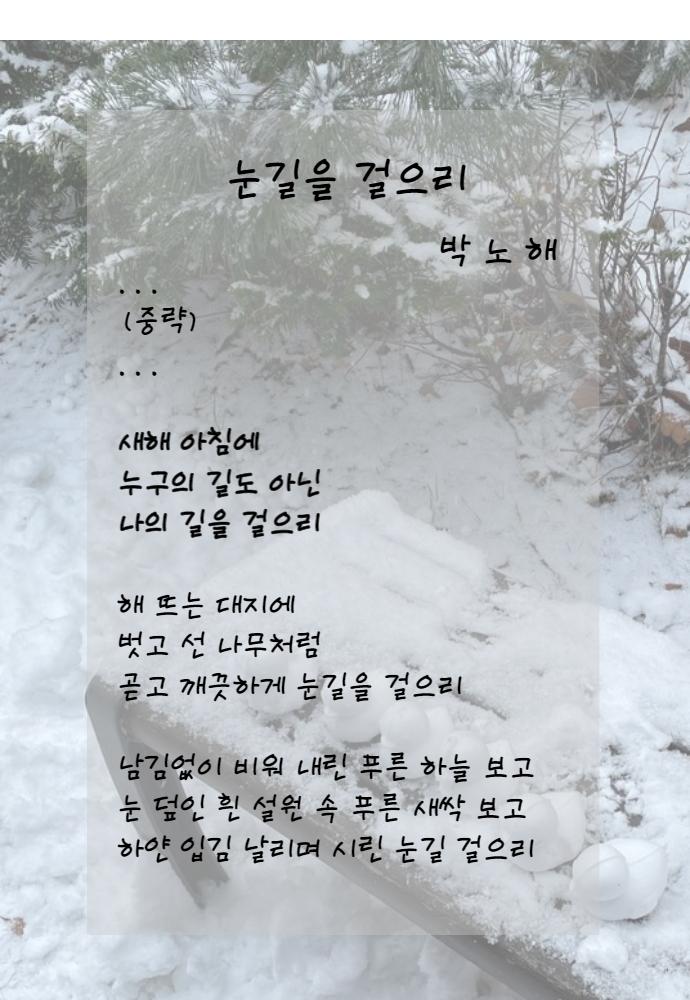 눈길을 걸으리
박 노 해
...
(중략)
...
새해 아침에
누구의 길도 아닌
나의 길을 걸으리
해 뜨는 대지에
벗고 선 나무처럼
곧고 깨끗하게 눈길을 걸으리
남김없이 비워 내린 푸른 하늘 보고
눈 덮인 흰 설원 속 푸른 새싹 보고
하얀 입김 날리며 시린 눈길 걸으리